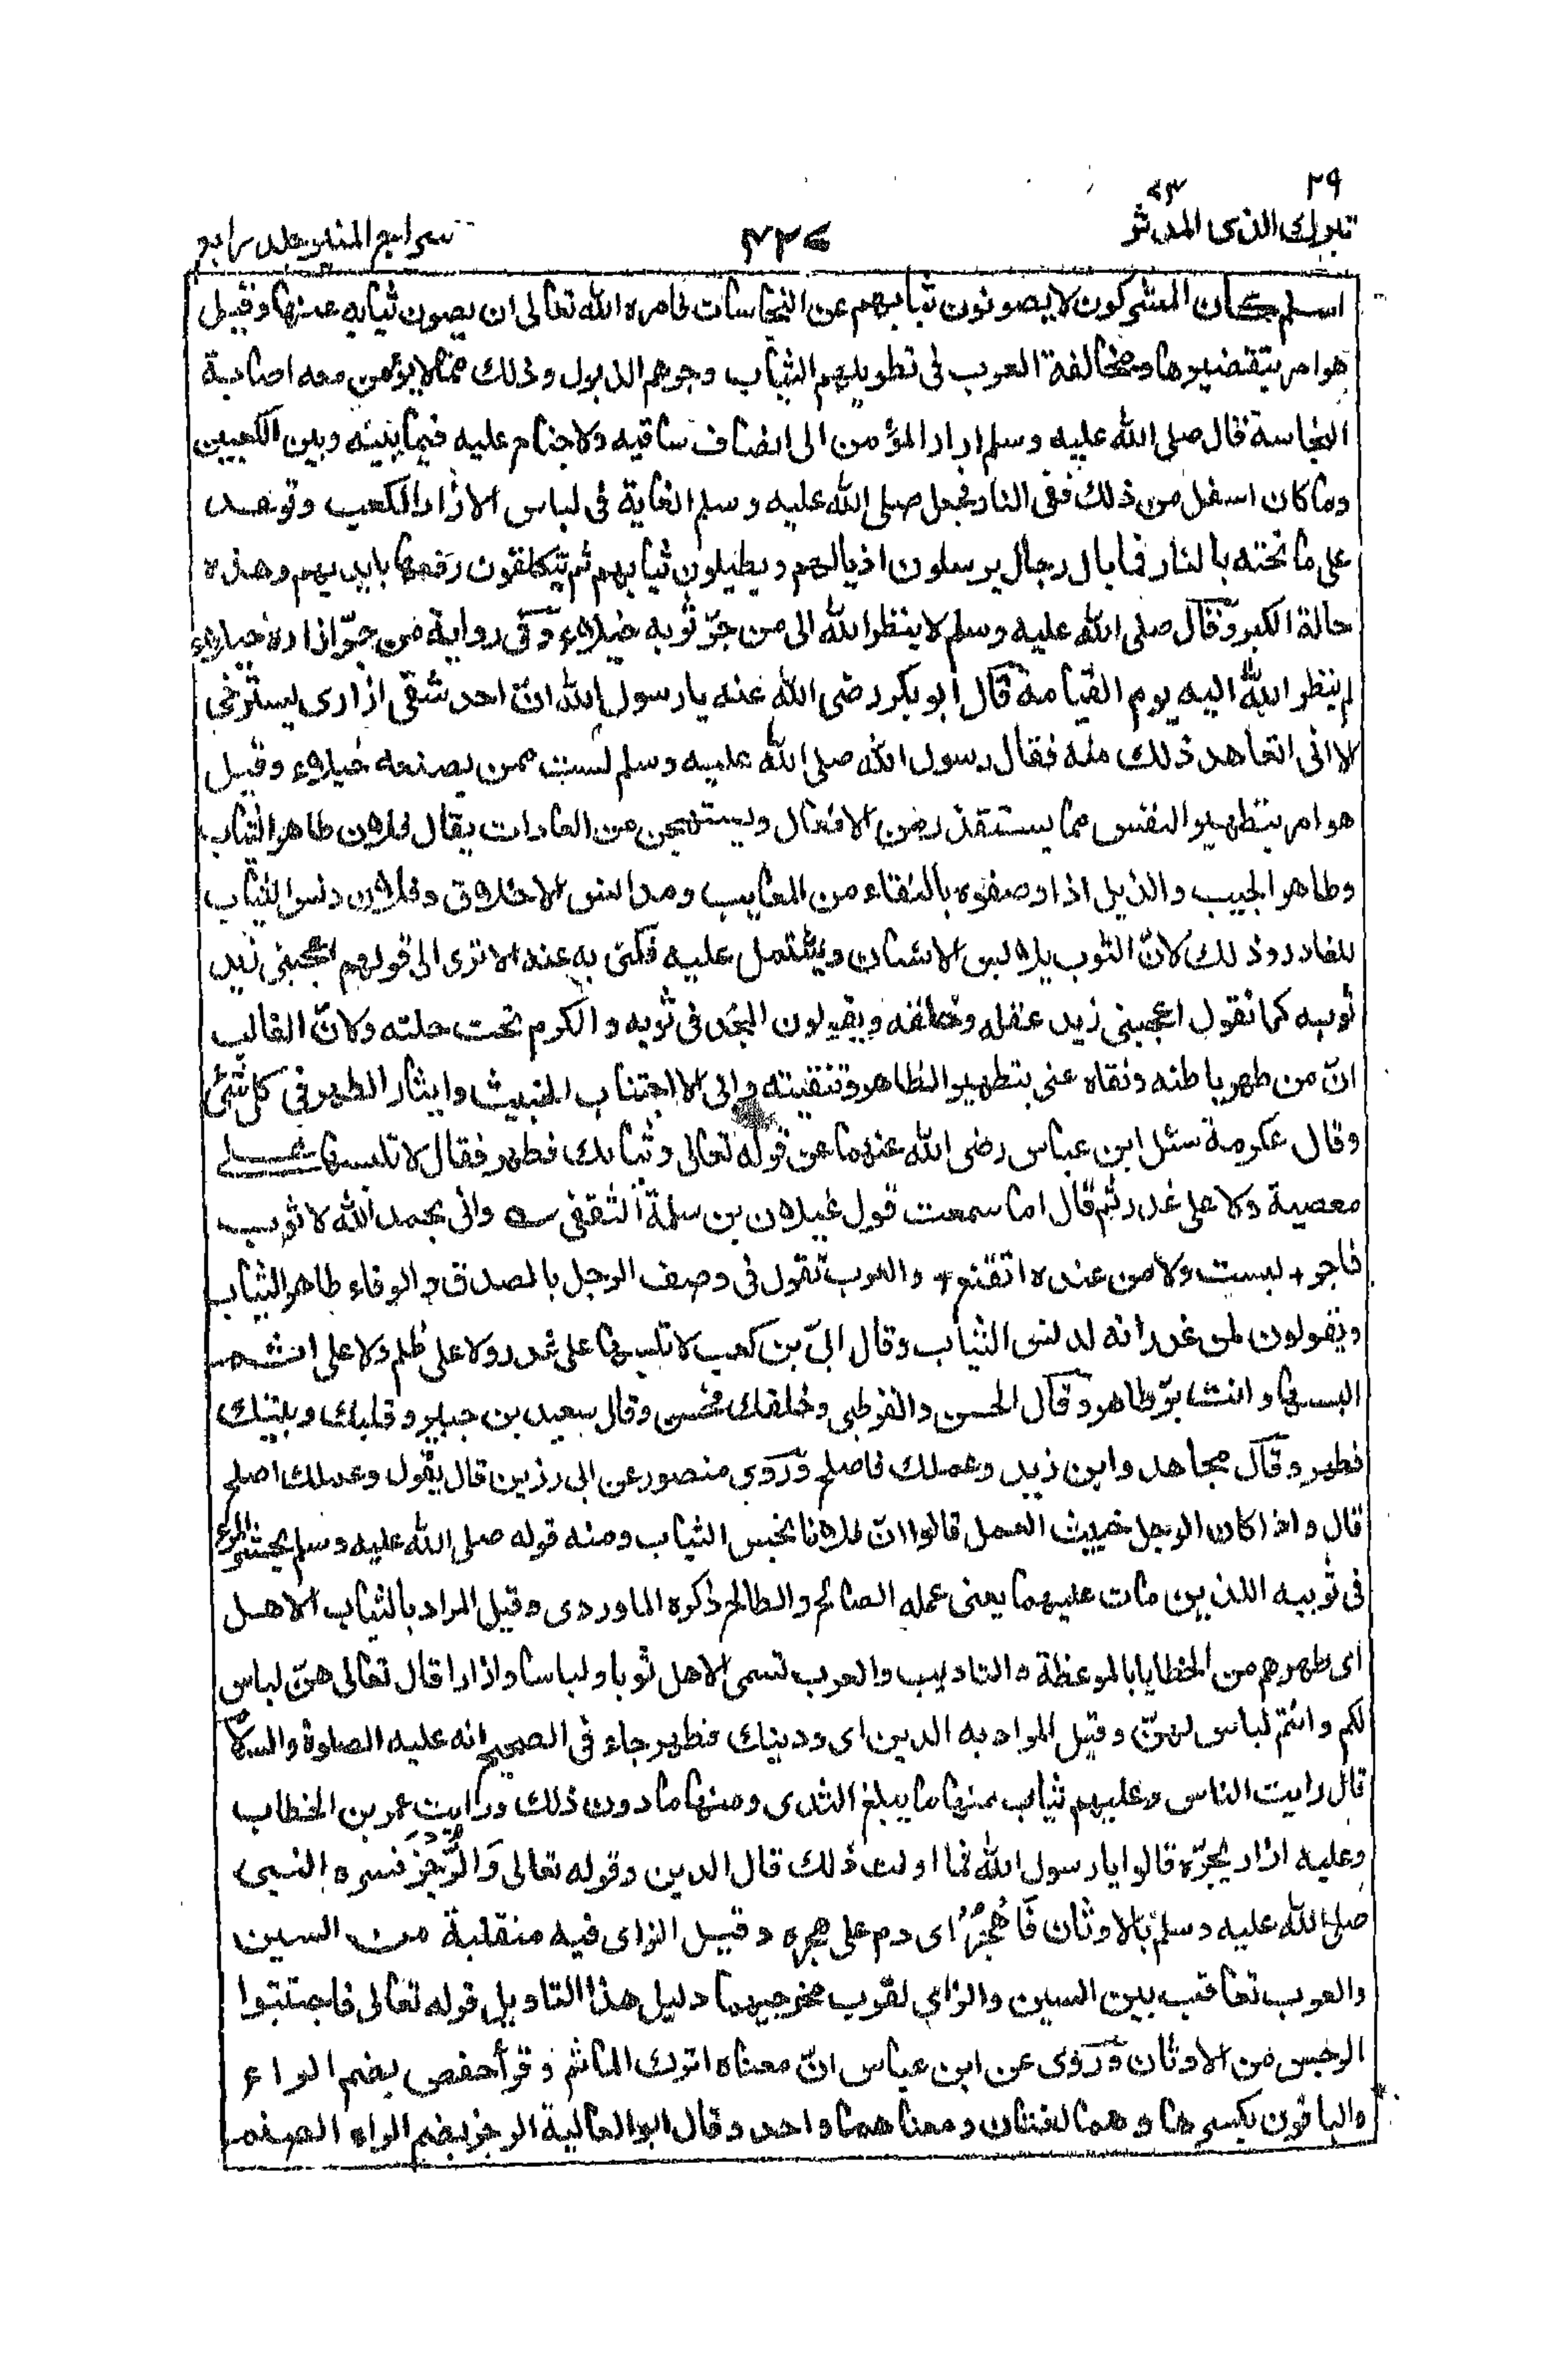 ٢٩
٧٣
تبرك الذى المدثر
٤٢٧
سراج المنير جلد رابع
اسلم كان المشركون لا يصونون ثيابهم عن النجاسات فامره الله تعالى ان يصون ثيابه عنها وقيل
هو امر بتقصيرها ومخالفة العرب فى تطويلهم الثياب وجرهم الذيول وذلك مما لا يؤمن معه اصابة
النجاسة قال صلى الله عليه وسلم ازار المؤمن الى انصاف ساقيه ولا جناح عليه فيما بينه وبين الكعبين
وما كان اسفل من ذلك ففى النار فجعل صلى الله عليه وسلم الغاية فى لباس الازار الكعب وتوعد
على ما تحته بالنار فما بال رجال يرسلون اذيالهم ويطيلون ثيابهم ثم يتكلفون رفعها بايديهم وهذه
حالة الكبر وقال صلى الله عليه وسلم لا ينظر الله الى من جرّ ثوبه خيلاء وفى رواية من جرّ ازاره خيلاء
لم ينظر الله اليه يوم القيامة قال ابو بكر رضى الله عنه يا رسول الله انّ احد شقى ازارى يسترخى
الا انى اتعاهد ذلك منه فقال رسول الله صلى الله عليه وسلم لست ممن يصنعه خيلاء وقيل
هو امر بتطهير النفس مما يستقذر من الافعال ويستهجن من العادات يقال فلان طاهر الثياب
وطاهر الجيب والذيل اذا وصفوه بالنقاء من المعايب ومدانس الاخلاق وفلان دنس الثياب
للغادر وذلك لانّ الثوب يلابس الانسان ويشتمل عليه فكنى به عنه الا ترى الى قولهم اعجبنى زيد
ثوبه كما تقول اعجبنى زيد عقله وخلقه ويقولون المجد فى ثوبه والكرم تحت حلته ولانّ الغالب
انّ من طهر باطنه ونقاه عنى بتطهير الظاهر وتنقيته وابى الا اجتناب الخبيث وايثار الطهر فى كل شئ
وقال عكرمة سئل ابن عباس رضى الله عنهما عن قوله تعالى وثيابك فطهر فقال لا تلبسها على
معصية ولا على غدر ثم قال اما سمعت قول غيلان بن سلمة الثقفى ؎ وانى بحمد الله لا ثوب
فاجر + لبست ولا من عنده اتقنع + والعرب تقول فى وصف الرجل بالصدق والوفاء طاهر الثياب
ويقولون لمن غدر انه لدنس الثياب وقال ابىّ بن كعب لا تلبسها على غدر ولا على ظلم ولا على اثم
البسها وانت برّ طاهر وقال الحسن والقرظبى وخلقك فحسن وقال سعيد بن جبير وقلبك وبيتك
فطهر وقال مجاهد وابن زيد وعملك فاصلح وروى منصور عن ابى رزين قال يقول وعملك اصلح
قال واذا كان الرجل خبيث العمل قالوا انّ فلانا نجس الثياب ومنه قوله صلى الله عليه وسلم يحشر المرء
فى ثوبيه الذين مات عليهما يعنى عمله الصالح والطالح ذكره الماوردى وقيل المراد بالثياب الاهل
اى طهرهم من الخطايا بالموعظة والتاديب والعرب تسمى الاهل ثوبا ولباسا وازارا قال تعالى هنّ لباس
لكم وانتم لباس لهنّ وقيل المراد به الدين اى ودينك فطهر جاء فى الصحيح انه عليه الصلوة والسلام
قال رايت الناس وعليهم ثياب منها ما يبلغ الثدى ومنها ما دون ذلك ورايت عمر بن الخطاب
وعليه ازار يجرّه قالوا يا رسول الله فما اولت ذلك قال الدين وقوله تعالى وَالرُّجْزَ فسره النبى
صلى الله عليه وسلم بالاوثان فَاهْجُرْ اى دم على هجره وقيل الزاى فيه منقلبة من السين
والعرب تعاقب بين السين والزاى لقرب مخرجيهما دليل هذا التاويل قوله تعالى فاجتنبوا
الرجس من الاوثان وروى عن ابن عباس انّ معناه اترك المآثم وقرأ حفص بضم الراء
والباقون بكسرها وهما لغتان ومعناهما واحد وقال ابو العالية الرجز بضم الراء الصنم